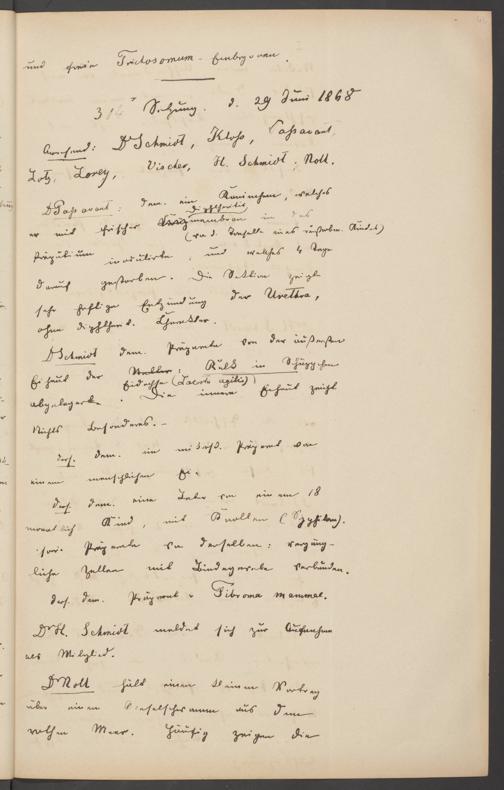 und freie Trichosomum-Embryonen.
31 Sitzung. d. 29 Juni 1868
Anwesend: Dr Schmidt, Kloss, Passavant,
Lotz, Lorey, Vischer, H. Schmidt, Noll.
Dr Passavant: dem. ein Kaninchen, welches
er mit frischer diphtherit. membran in das
(von d. eines verstorben. Kindes)
Präputium inoculirte, und welches 4 Tage
darauf gestorben. Die Sektion zeigte
sehr heftige Entzündung der Urethra,
ohne diphtherit. Charakter.
Dr Schmidt dem. Präparate von der äußersten
der Kalk in
abgelagerte. Eidechse (Lacerta agilis) Die innere zeigt
Nichts Besonderes. -
ders. dem. ein mikrosk. Präparat von
einem menschlichen Ei.
ders. dem. eine Leber von einem 18
monatlich Kind, mit Knollen (Syphilom).
Präparate von derselben:
liche Zellen mit Bindegewebe verbunden.
ders. dem. Präparat v. Fibroma mammae.
Dr H. Schmidt meldet sich zur Aufnahme
als Mitglied.
Dr Noll hält einen kleinen Vortrag
über einen Kieselschwamm aus dem
rothen Meer. Häufig zeigen die